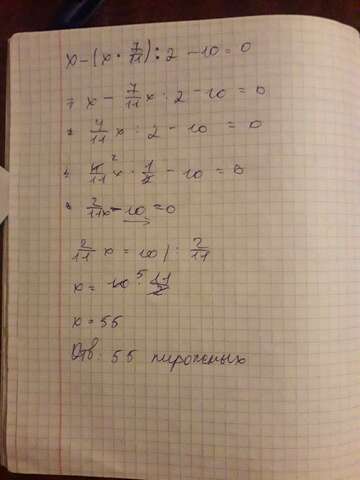 x - (x · 7/11) : 2 - 10 = 0
7 x - 7/11 x : 2 - 10 = 0
4/11 x : 2 - 10 = 0
4/11 ² x · 1/2 - 10 = 0
2/11 x - 10 = 0
2/11 x = 10 | : 2/11
x = 10 ⁵ · 11/2
x = 55
Отв: 55 пирожных